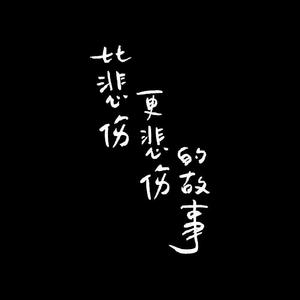 比悲伤
更悲伤
的故事